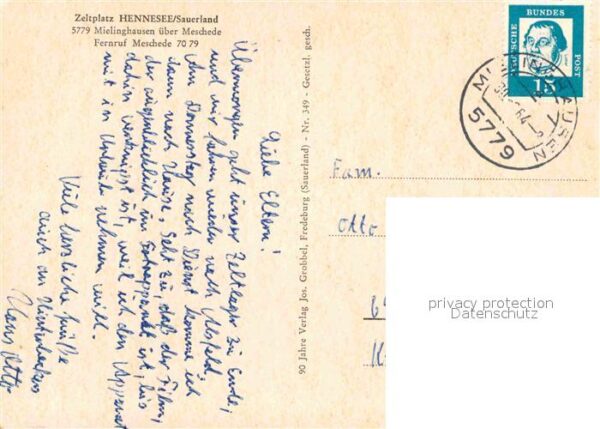 Zeltplatz HENNESEE/Sauerland
5779 Mielinghausen über Meschede
Fernruf Meschede 70 79
Liebe Eltern!
Übermorgen geht unser Zeltlager zu Ende,
und wir fahren wieder nach
Am Donnerstag nach Dienst komme ich
dann nach Hause. Seht zu, daß der Film,
der augenblicklich im Fotoapparat ist, bis
dahin verknipst ist, weil ich den Apparat
mit in Urlaub nehmen will.
Viele herzliche Grüße
auch an
Hans Otto
90 Jahre Verlag Jos. Grobbel, Fredeburg (Sauerland) - Nr. 349 - Gesetzl. gesch.
DEUTSCHE BUNDES POST
15
5779
64
Fam.
Otto
privacy protection
Datenschutz